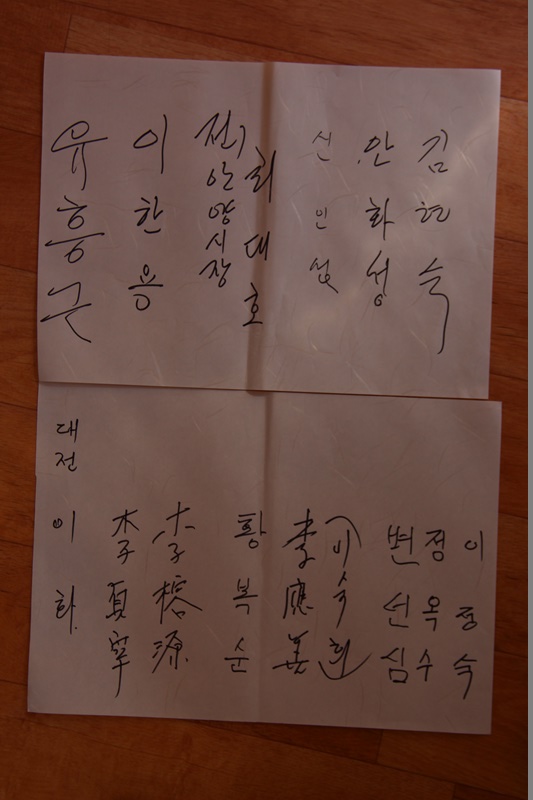 김현숙
안화성
신인성
최대호
전)안양시장
이한용
유흥근
이정숙
정옥수
변선심
(이숙희)
李應善
황복순
李榕源
李夏宰
대전 이화